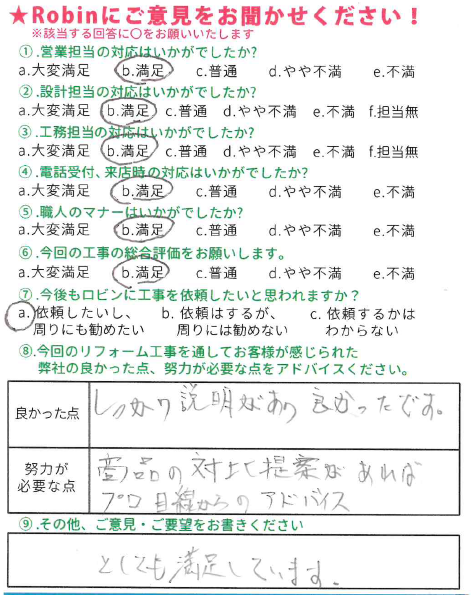 ★Robinにご意見をお聞かせください！
※該当する回答に〇をお願いいたします
①.営業担当の対応はいかがでしたか?
a.大変満足 b.満足 c.普通 d.やや不満 e.不満
②.設計担当の対応はいかがでしたか?
a.大変満足 b.満足 c.普通 d.やや不満 e.不満 f.担当無
③.工務担当の対応はいかがでしたか?
a.大変満足 b.満足 c.普通 d.やや不満 e.不満 f.担当無
④.電話受付、来店時の対応はいかがでしたか?
a.大変満足 b.満足 c.普通 d.やや不満 e.不満
⑤.職人のマナーはいかがでしたか?
a.大変満足 b.満足 c.普通 d.やや不満 e.不満
⑥.今回の工事の総合評価をお願いします。
a.大変満足 b.満足 c.普通 d.やや不満 e.不満
⑦.今後もロビンに工事を依頼したいと思われますか？
a.依頼したいし、 b. 依頼はするが、 c. 依頼するかは
周りにも勧めたい 周りには勧めない わからない
⑧.今回のリフォーム工事を通してお客様が感じられた
弊社の良かった点、努力が必要な点をアドバイスください。
良かった点 しっかり説明があり良かったです。
努力が 商品の対比提案があれば
必要な点 プロ目線からのアドバイス
⑨.その他、ご意見・ご要望をお書きください
とても満足しています。